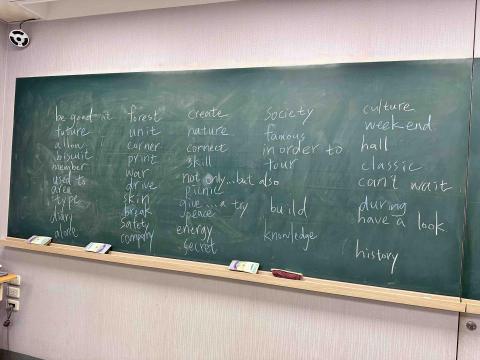 be good at
future
allow
biscuit
member
used to
area
type
diary
alone
forest
unit
corner
print
war
drive
skin
break
safety
company
create
nature
connect
skill
not only...but also
picnic
give...a try
peace
energy
secret
society
famous
in order to
tour
build
knowledge
culture
weekend
hall
classic
can't wait
during
have a look
history